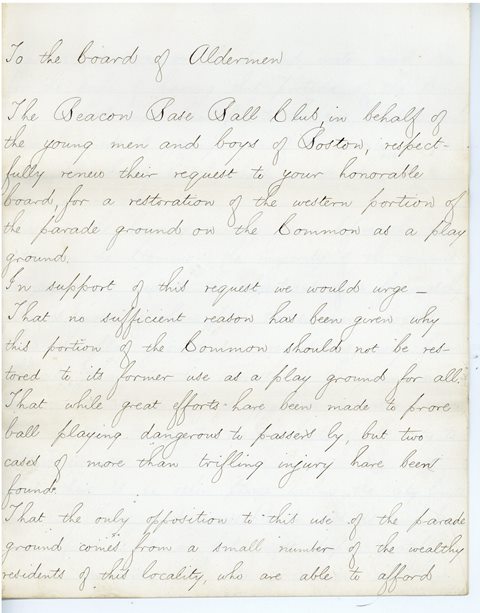 To the Board of Aldermen
The Beacon Base Ball Club, in behalf of
the young men and boys of Boston, respect-
fully renew their request to your honorable
board, for a restoration of the western portion of
the parade ground on the Common as a play
ground.
In support of this request we would urge –
That no sufficient reason has been given why
this portion of the Common should not be res-
tored to its former use as a play ground for all.
That while great efforts have been made to prove
ball playing dangerous to passers by, but two
cases of more than trifling injury have been
found.
That the only opposition to this use of the parade
ground comes from a small number of the wealthy
residents of this locality, who are able to afford